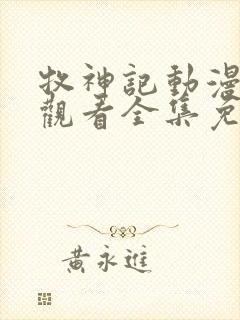 牧神記動漫
觀看全集免
黃永進